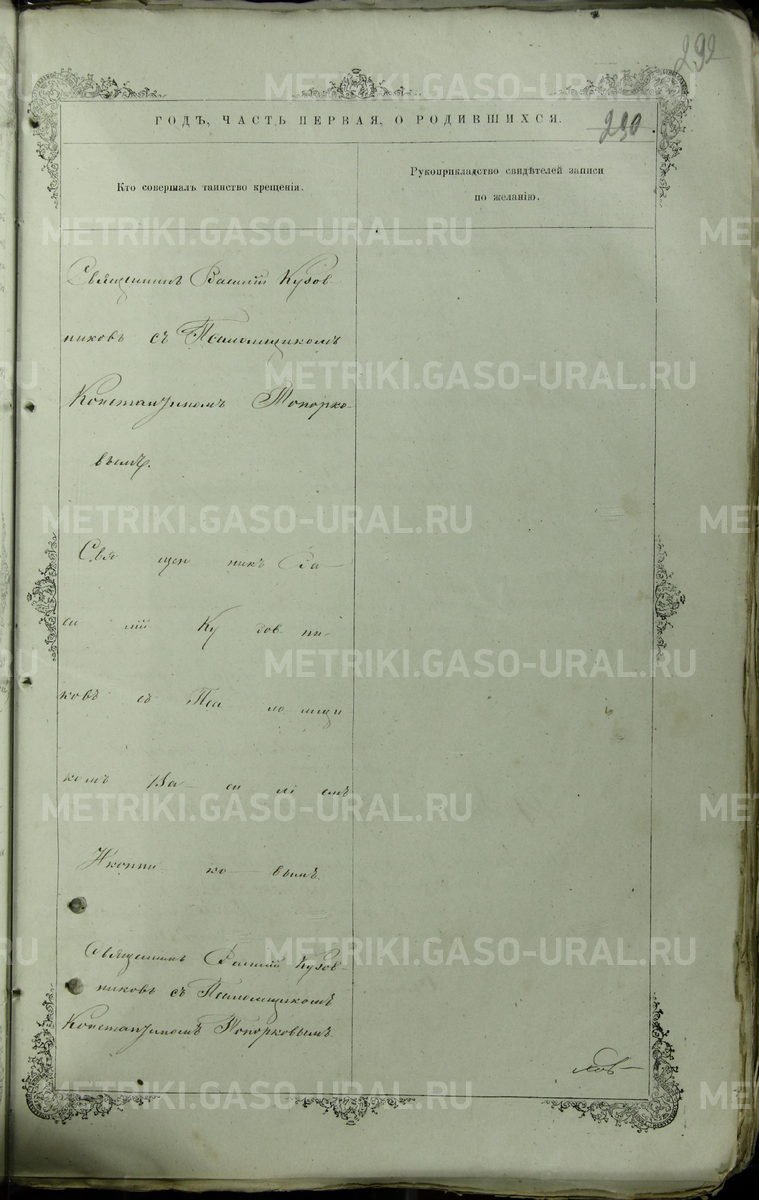 292
ГОДЪ, ЧАСТЬ ПЕРВАЯ, О РОДИВШИХСЯ.
230
Кто совершалъ таинство крещенія.
Рукоприкладство свидѣтелей записи
по желанію.
Священникъ Василій Кузов-
никовъ съ Псаломщикомъ
Константиномъ Топорко-
вымъ.
Свя щен никъ Ва-
си лій Ку зов ни-
ковъ съ Пса ло мщи
комъ Ва- си лі емъ
Икон
ко вымъ
Священникъ Василій Кузов-
никовъ съ Псаломщикомъ
Константиномъ Топорковымъ.
METRIKI.GASO-URAL.RU